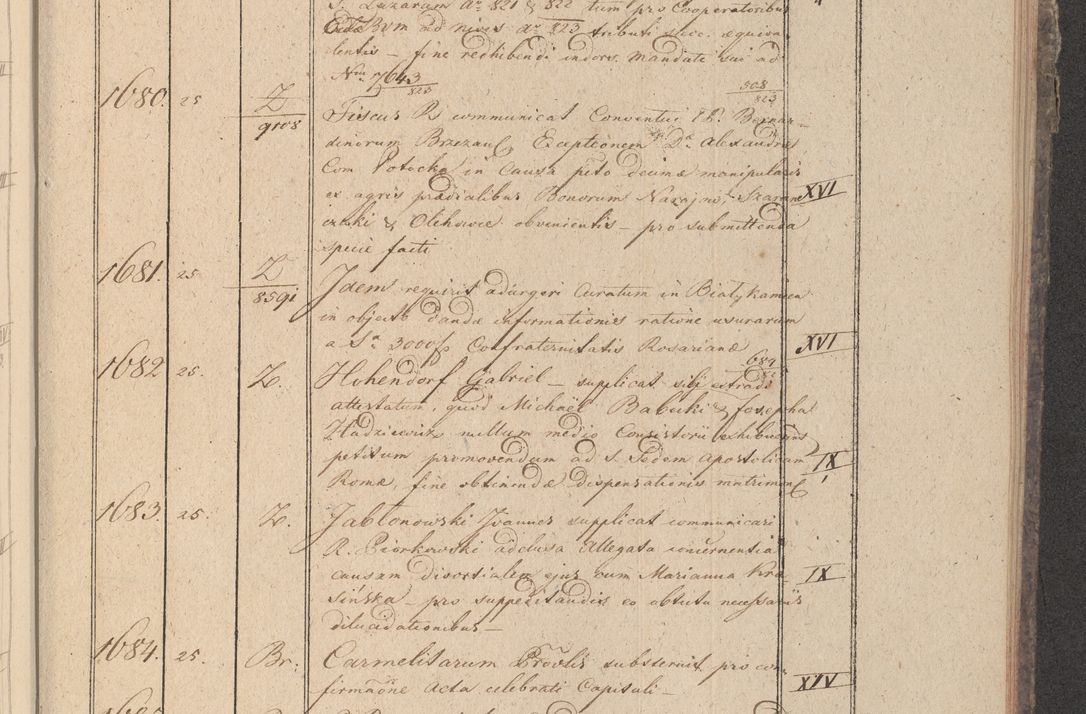 S. Lazarum Aº 821 & 822 tum pro Cooperatoribus
BVM ad nives Aº 823 tributi ecc. æquiva-
lentis – fine redhibendi indors. Mandati sui ad
Nrm 7643/823
308/823
1680. 25 Z/9708 Fiscus Rs communicat Conventui PP. Bernar-
dinorum Brzezan Exceptionem Dª Alexandri
Com Potocki in Causa peto decimæ manipularis
ex agris prædialibus Bonorum Narajow, Szaran- XVI
czuki & Olchowce obvenientis – pro submittenda
specie facti
1681. 25 Z/8591 Idem requirit adurgeri Curatum in Białykamien
in objecto dandæ informationis ratione usurarum
a Sª 3000 f Confraternitatis Rosarianæ XVI
689
1682 25. Z. Hohendorf Gabriel – supplicat sibi extradi
attestatum, quod Michaël Babecki & Josepha
Hadziewicz nullum medio Consistorii exhibuerint
petitum promovendum ad S. Sedem Apostolicam IX
Romæ, fine obtinendæ dispensationis matrimon
1683. 25. Z. Jabłonowski Joannes supplicat communicari
R. Piorkowski adclusa Allegata concernentia
causam divortialem ejus cum Marianna Kra- IX
sińska – pro suppeditandis eo obtutu necessariis
dilucidationibus –
1684. 25. Br. Carmelitarum Provlis substernit pro con-
firmaõne Acta celebrati Capituli – XIV